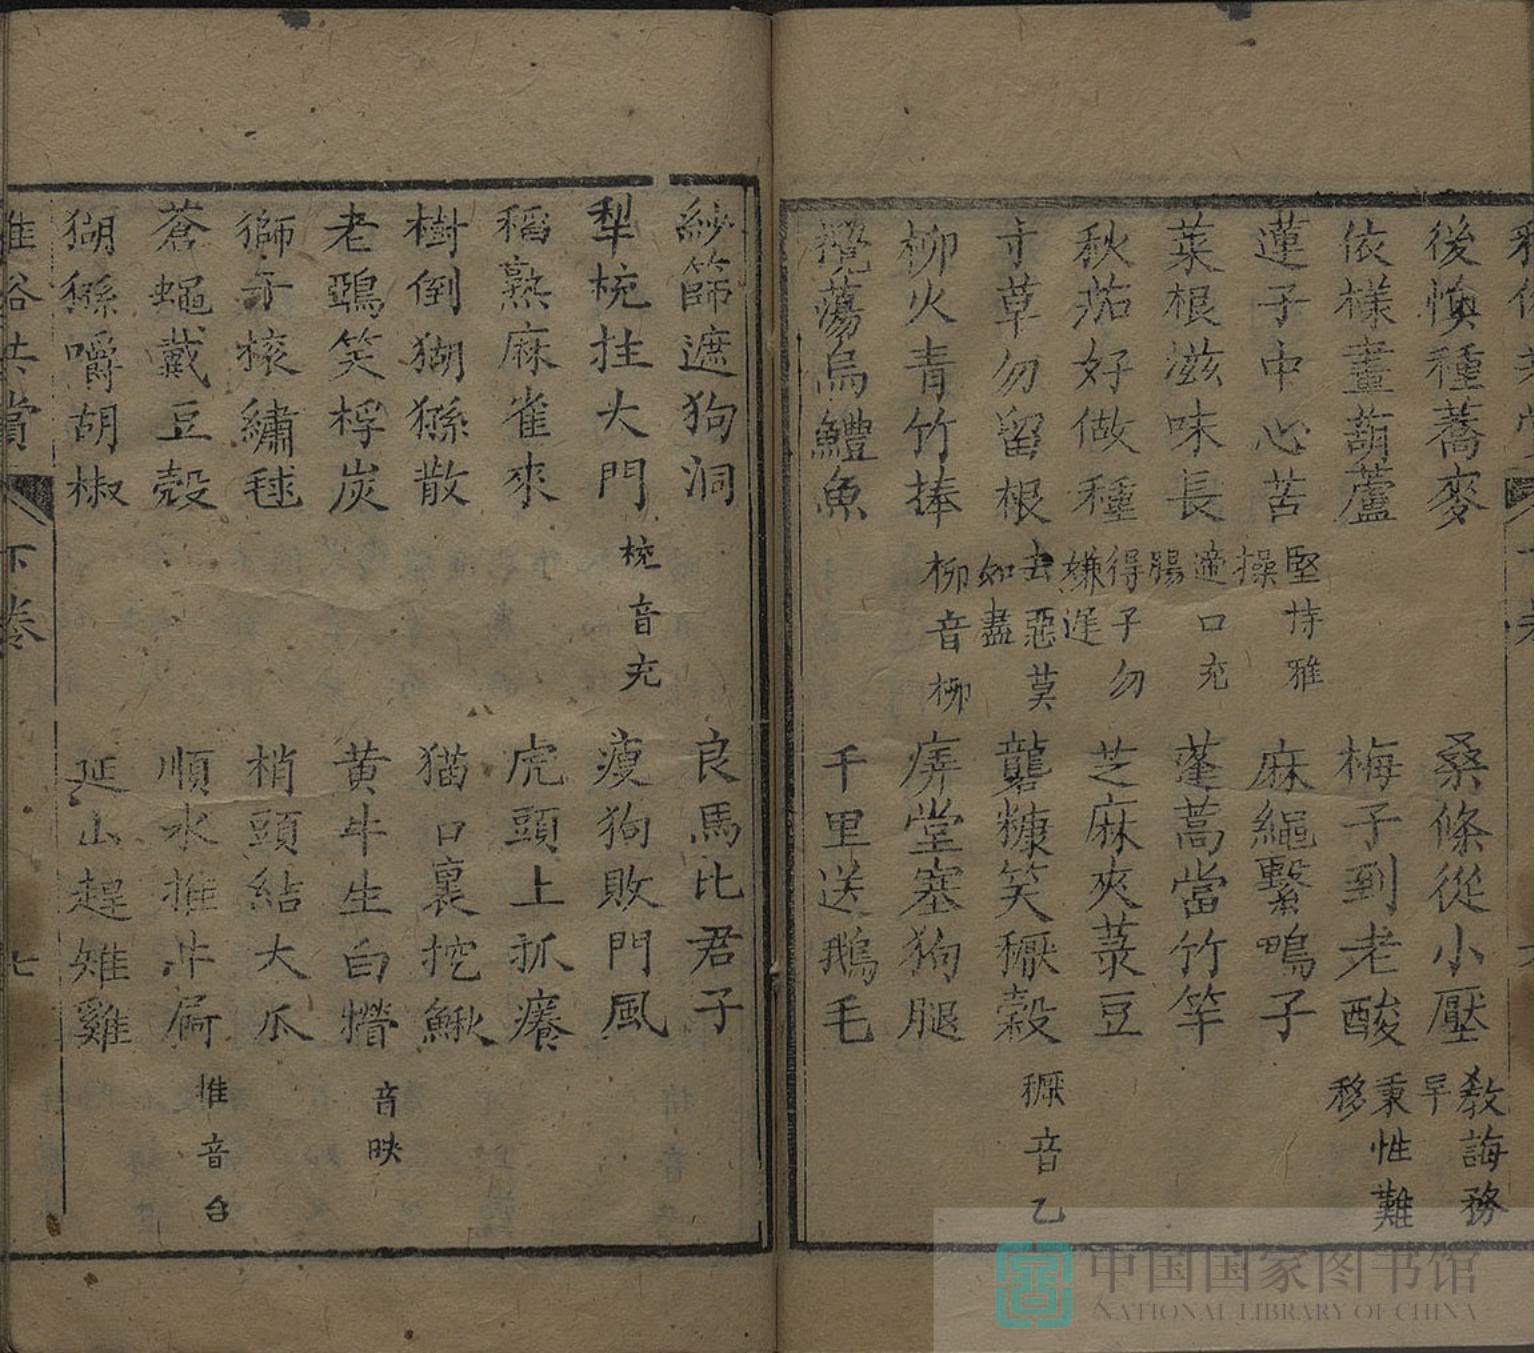 後悔種蕎麥
桑條從小壓 教誨務早
依樣畫葫蘆
梅子到老酸 秉性難移
蓮子中心苦 堅持雅操
麻繩繫鴨子
菜根滋味長 適口充腸
蓬蒿當竹竿
秋茄好做種 得子勿嫌遲
芝麻夾菉豆
寸草勿留根 去惡莫如盡
礱糠笑穪穀 音乙
柳火青竹捧 音柳
庠堂塞狗腿
攪蕩烏鱧魚
千里送鵝毛
紗篩遮狗洞
良馬比君子
犁梚拄大門 梚音充
瘦狗敗門風
稻熟麻雀來
虎頭上抓癢
樹倒猢猻散
猫口裏挖鰍
老鴉笑桴炭
黄牛生白㸾 音映
獅子滾繡毬
梢頭結大瓜
蒼蠅戴豆殼
順水推牛屙 推音台
猢猻嚼胡椒
延山趕雉雞
雅俗共賞
下巻
七
中国国家图书馆
NATIONAL LIBRARY OF CHINA